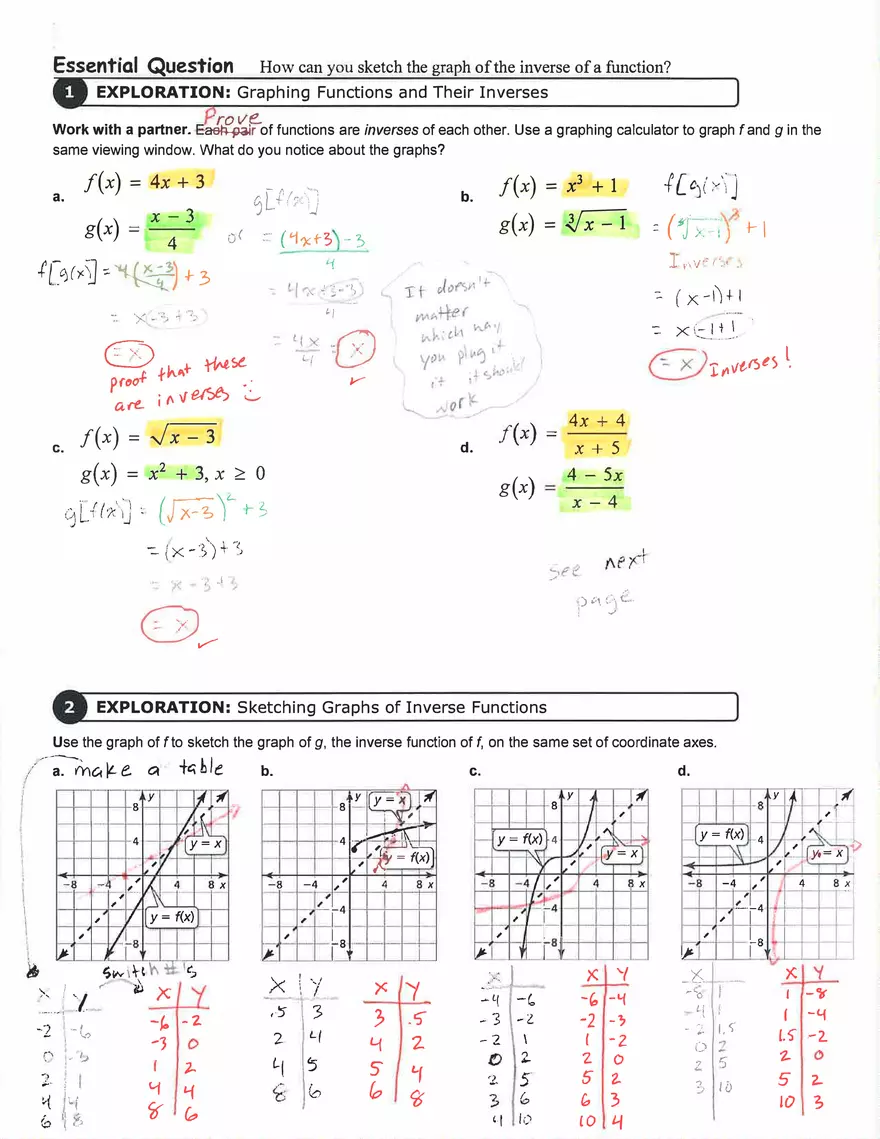 Essential Question How can you sketch the graph of the inverse of a function?
1 EXPLORATION: Graphing Functions and Their Inverses
Prove
Work with a partner. Each pair of functions are inverses of each other. Use a graphing calculator to graph f and g in the
same viewing window. What do you notice about the graphs?
a. f(x) = 4x + 3
g(x) = (x − 3)/4
f[g(x)] = 4((x-3)/4) + 3
= x-3+3
= x
proof that these
are inverses
or
g[f(x)]
= ((4x+3)-3)/4
= (4x+3-3)/4
= 4x/4 = x
It doesn't
matter
which way
you plug it
it should
work
b. f(x) = x³ + 1
g(x) = ∛(x − 1)
f[g(x)]
= (∛(x-1))³ + 1
Inverses
= (x-1)+1
= x-1+1
= x Inverses!
c. f(x) = √(x − 3)
g(x) = x² + 3, x ≥ 0
g[f(x)] = (√(x-3))² + 3
= (x-3)+3
= x-3+3
= x
d. f(x) = (4x + 4)/(x + 5)
g(x) = (4 − 5x)/(x − 4)
see next
page
2 EXPLORATION: Sketching Graphs of Inverse Functions
Use the graph of f to sketch the graph of g, the inverse function of f, on the same set of coordinate axes.
a. make a table
b.
c.
d.
y
8
4
y = x
-8 -4 4 8 x
y = f(x)
-8
y
8
y = x
4
y = f(x)
-8 -4 4 8 x
-4
-8
y
8
y = f(x)
4
y = x
-8 -4 4 8 x
-4
-8
y
8
y = f(x)
4
y = x
-8 -4 4 8 x
-4
-8
switch #'s
X Y
-2 -6
0 -3
2 1
4 4
6 8
X Y
-6 -2
-3 0
1 2
4 4
8 6
X Y
.5 3
2 4
4 5
8 6
X Y
3 .5
4 2
5 4
6 8
X
-4 -6
-3 -2
-2 1
0 2
2 5
3 6
4 10
X Y
-6 -4
-2 -3
1 -2
2 0
5 2
6 3
10 4
X
-8 1
-4 1
-2 1.5
0 2
2 5
3 10
X Y
1 -8
1 -4
1.5 -2
2 0
5 2
10 3